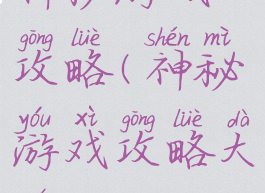 gōng lüè shén mì
攻略(神秘
yóu xì gōng lüè dà
游戏攻略大